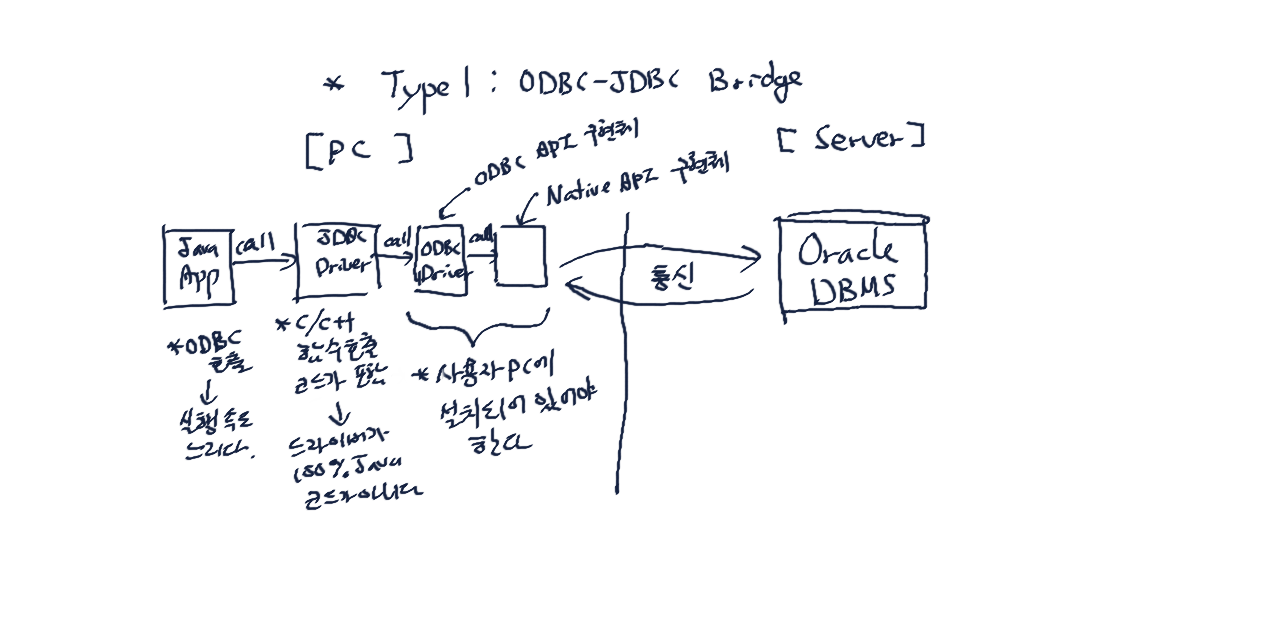 * Type 1 : ODBC-JDBC Bridge
[PC]
[Server]
ODBC API 구현체
Native API 구현체
Java
App
call
JDBC
Driver
call
ODBC
Driver
call
통신
Oracle
DBMS
*ODBC
호출
↓
실행 속도
느리다.
*C/C++
함수호출
코드가 포함
↓
드라이버가
100% Java
코드가 아니다
* 사용자 PC에
설치되어 있어야
한다